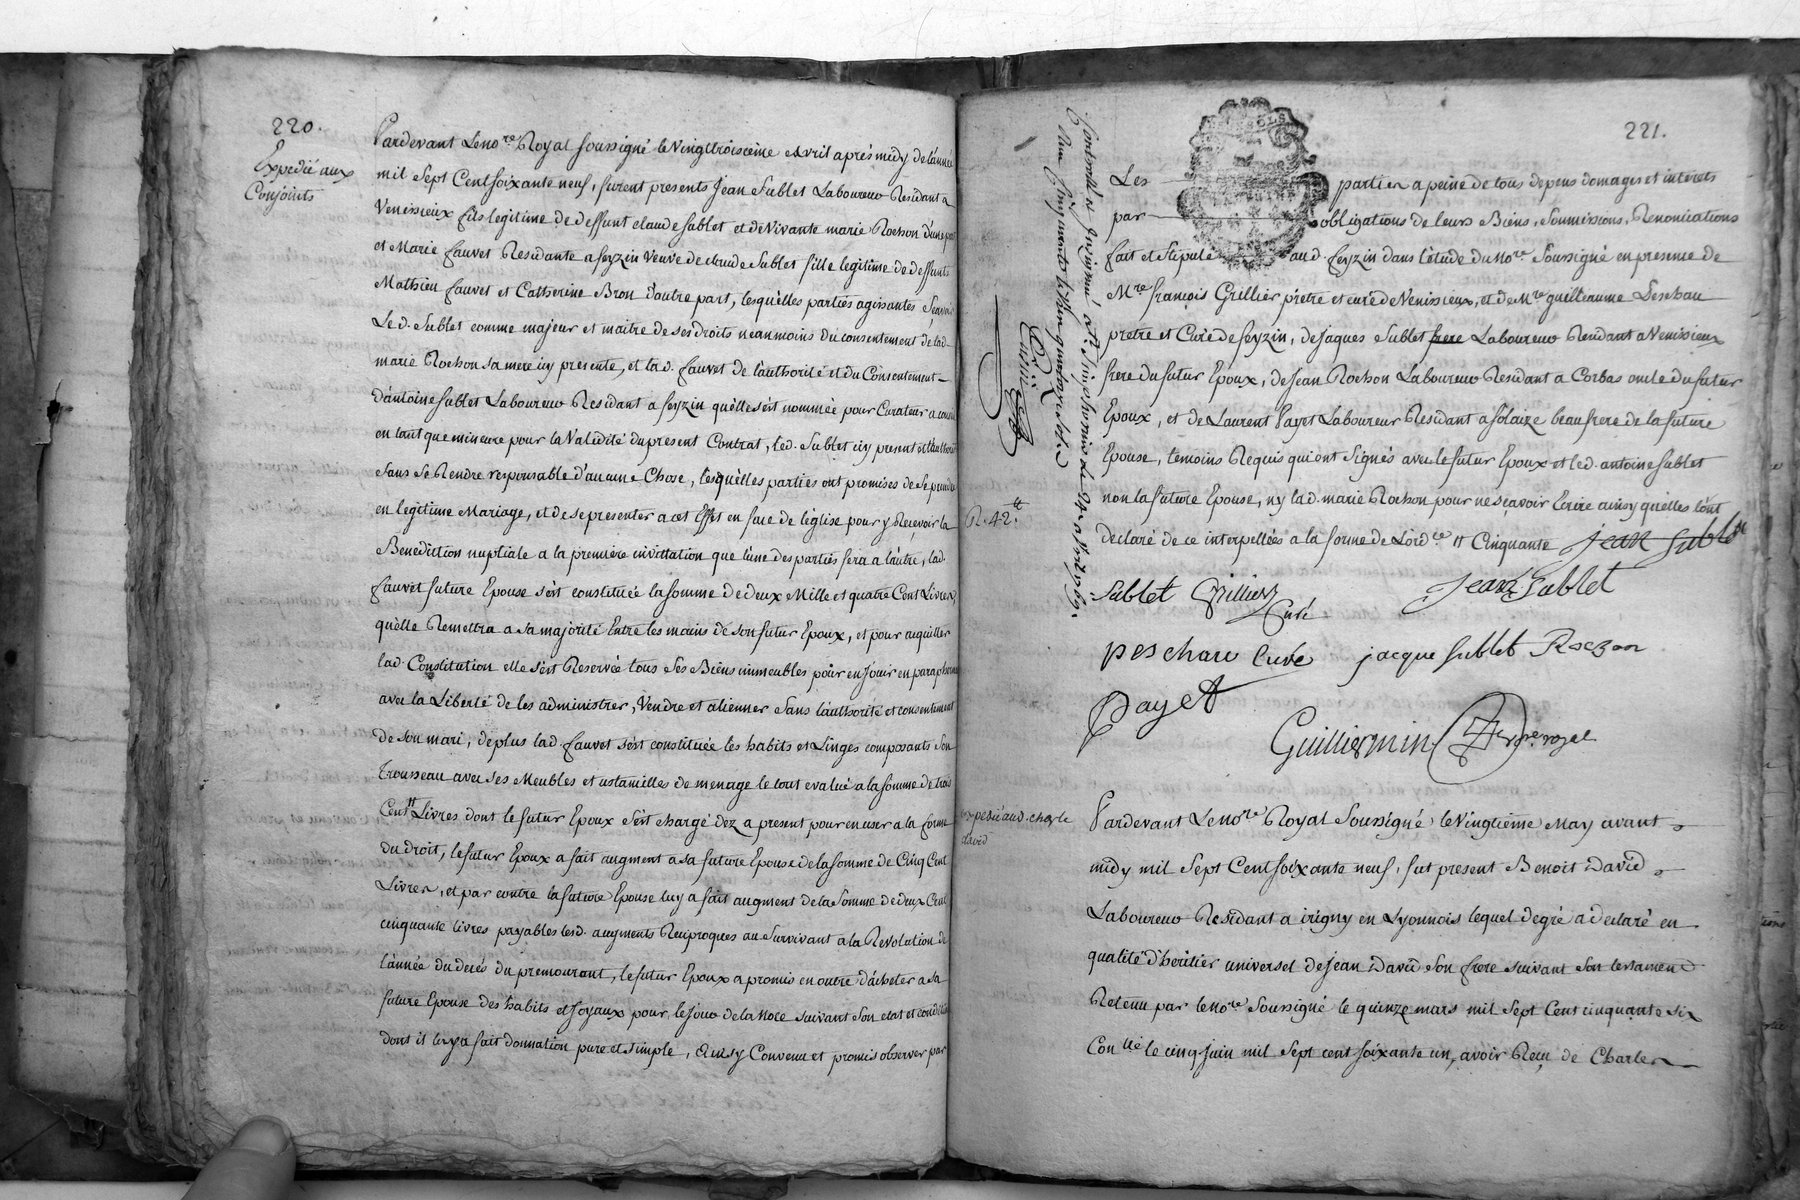 220.
Expedié aux
Conjoints
Pardevant Le no.re Royal soussigné le Vingttroisieme Avril après midy de l'année
mil Sept Cent soixante neuf, furent presents Jean Sublet Laboureur Residant a
Venissieux fils legitime de deffunt claude Sublet et de Vivante marie Rochon d'une part
et Marie fauvet Residante a feyzin Veuve de claude Sublet fille legitime de deffunts
Mathieu fauvet et Catherine Bron d'autre part, lesquelles parties agissantes Scavoir
Led. Sublet comme majeur et maitre de ses droits neanmoins du consentement de lad.
marie Rochon sa mere icy presente, et lad. fauvet de l'authorité et du Consentement
d'antoine Sublet Laboureur Residant a feyzin qu'elle s'est nommée pour Curateur a
en tant que mineure pour la Validité du present Contrat, led. Sublet icy present et l'authorisant
sans se Rendre responsable d'aucune Chose, lesquelles parties ont promises de se prendre
en legitime Mariage, et de se presenter a cet Effet en face de l'église pour y Recevoir la
Benediction nuptiale a la première invittation que l'une des parties fera a l'autre, lad.
fauvet future Epouse s'est constituée la somme de deux Mille et quatre Cent Livres,
qu'elle Remettra a sa majorité Entre les mains de son futur Epoux, et pour acquitter
lad. Constitution elle s'est Reservée tous ses Biens immeubles pour en Jouir en paraphernal
avec la Liberté de les administrer, Vendre et aliener sans l'authorité et consentement
de son mari, de plus lad. fauvet s'est constituée les habits et Linges composants son
Trousseau avec ses Meubles et ustancilles de menage le tout evalué a la somme de trois
Cent Livres dont le futur Epoux s'est chargé dez a present pour en user a la forme
du droit, le futur Epoux a fait augment a sa future Epouse de la somme de Cinq Cent
Livres, et par contre la future Epouse luy a fait augment de la Somme de deux Cent
cinquante livres payables lesd. augments Reciproques au Survivant a la Revolution de
l'année du decés du premourant, le futur Epoux a promis en outre d'acheter a sa
future Epouse des habits et Joyaux pour le Jour de la noce suivant son etat et condition
dont il luy a fait donnation pure et simple, Ainsy Convenu et promis observer par
221.
SOLS
Les parties a peine de tous depens domages et interets
par obligations de leurs Biens, Soumissions, Renonciations
fait et Stipulé aud. feyzin dans l'étude du No.re Soussigné en presence de
M.re françois Grillier prêtre et curé de Venissieux, et de M.re guilleaume Peschau
pretre et Curé de feyzin, de Jaques Sublet frere Laboureur Residant a Venissieux
frere du futur Epoux, de Jean Rochon Laboureur Residant a Corbas oncle du futur
Epoux, et de Laurent Payet Laboureur Residant a Solaize beaufrere de la future
Epouse, temoins Requis qui ont Signés avec le futur Epoux et led. antoine Sublet
non la future Epouse, ny lad. marie Rochon pour ne sçavoir Ecrire ainsy qu'elles l'ont
declaré de ce interpellées a la forme de L'ord.ce tt Cinquante jean Sublet
Sublet Grillier Curé Jean Sublet
peschau Curé jacque Sublet Roczon
Payet
Guilliermin No.re royal
Controllé et
R. 42.tt
Expedié aud. charle
david
Pardevant Le no.re Royal Soussigné le Vingtième May avant
midy mil Sept Cent soixante neuf, fut present Benoit David
Laboureur Residant a irigny en Lyonnois lequel de gré a declaré en
qualité d'héritier universel de Jean David son frere suivant son testament
Retenu par le no.re Soussigné le quinze mars mil Sept Cent cinquante six
Con.llé le cinq Juin mil Sept cent soixante un, avoir Reçu de Charles